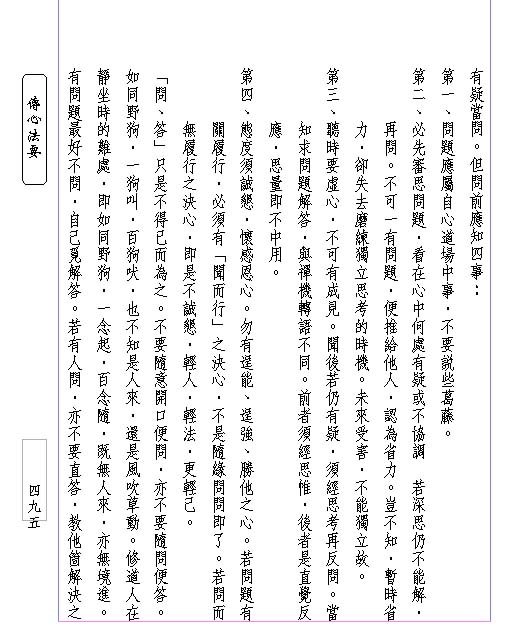 有疑當問。但問前應知四事：
第一、問題應屬自心道場中事，不要說些葛藤。
第二、必先審思問題，看在心中何處有疑或不協調　若深思仍不能解，
再問。不可一有問題，便推給他人，認為省力。豈不知，暫時省
力，卻失去磨練獨立思考的時機。未來受害，不能獨立故。
第三、聽時要虛心，不可有成見。聞後若仍有疑，須經思考再反問。當
知求問題解答，與禪機轉語不同。前者須經思惟，後者是直覺反
應，思量即不中用。
第四、態度須誠懇，懷感恩心。勿有逞能、逞強、勝他之心。若問題有
關履行，必須有「聞而行」之決心，不是隨緣問問即了。若問而
無履行之決心，即是不誠懇，輕人，輕法，更輕己。
「問、答」只是不得已而為之。不要隨意開口便問，亦不要隨問便答。
如同野狗，一狗叫，百狗吠，也不知是人來，還是風吹草動。修道人在
靜坐時的難處，即如同野狗，一念起，百念隨，既無人來，亦無境進。
有問題最好不問，自己覓解答。若有人問，亦不要直答，教他箇解決之
傳心法要
四九五